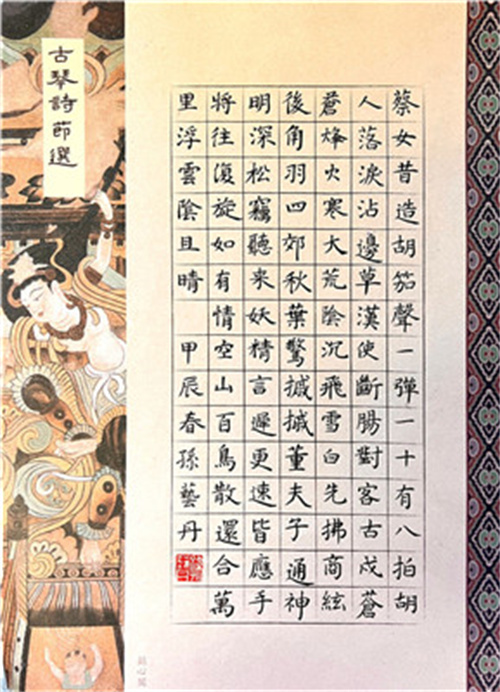 古琴詩節選
蔡女昔造胡笳聲一彈一十有八拍胡
人落淚沾邊草漢使斷腸對客古戍蒼
蒼烽火寒大荒陰沉飛雪白先拂商絃
後角羽四郊秋葉驚摵摵董夫子通神
明深松竊聽来妖精言遲更速皆應手
將往復旋如有情空山百鳥散還合萬
里浮雲陰且晴 甲辰春孫藝丹